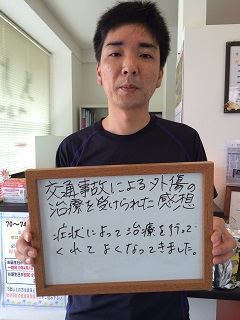 交通事故による外傷の
治療を受けられた感想
症状によって治療を行って
くれてよくなってきました。
70〜74